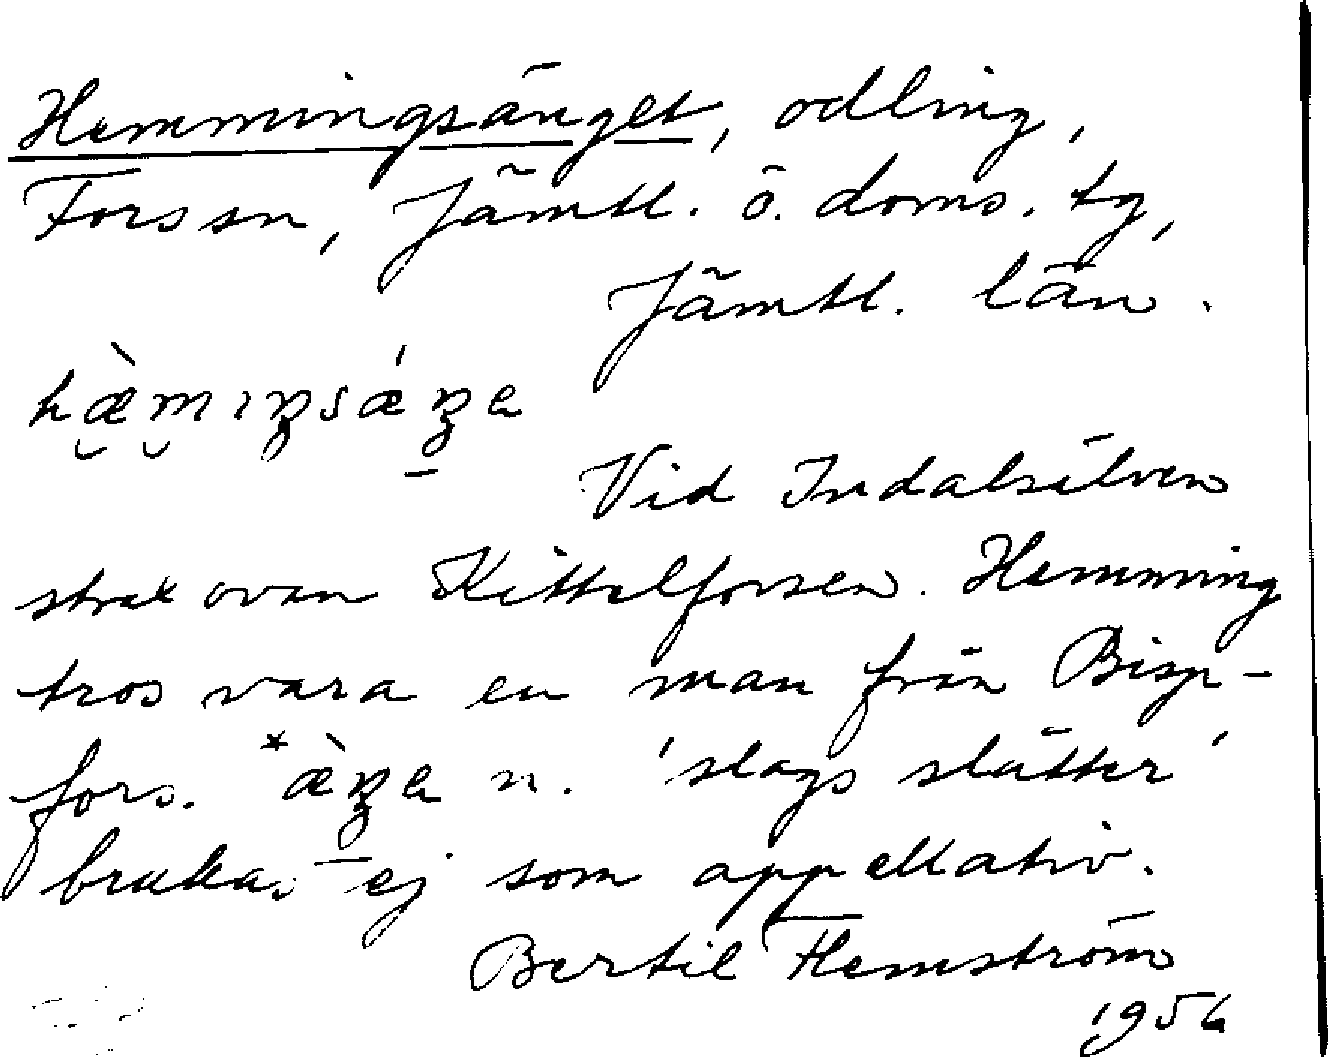 Hemmingsänget, odling,
Fors sn, Jämtl. ö. doms. tg,
Jämtl. län.
hæ̀mıŋsǽŋe
Vid Indalsälven
strax ovan Kittelforsen. Hemming
tros vara en man från Bisp-
fors. *æ̀ŋe n. 'slags slåtter'
brukas ej som appellativ.
Bertil Flemström
1956